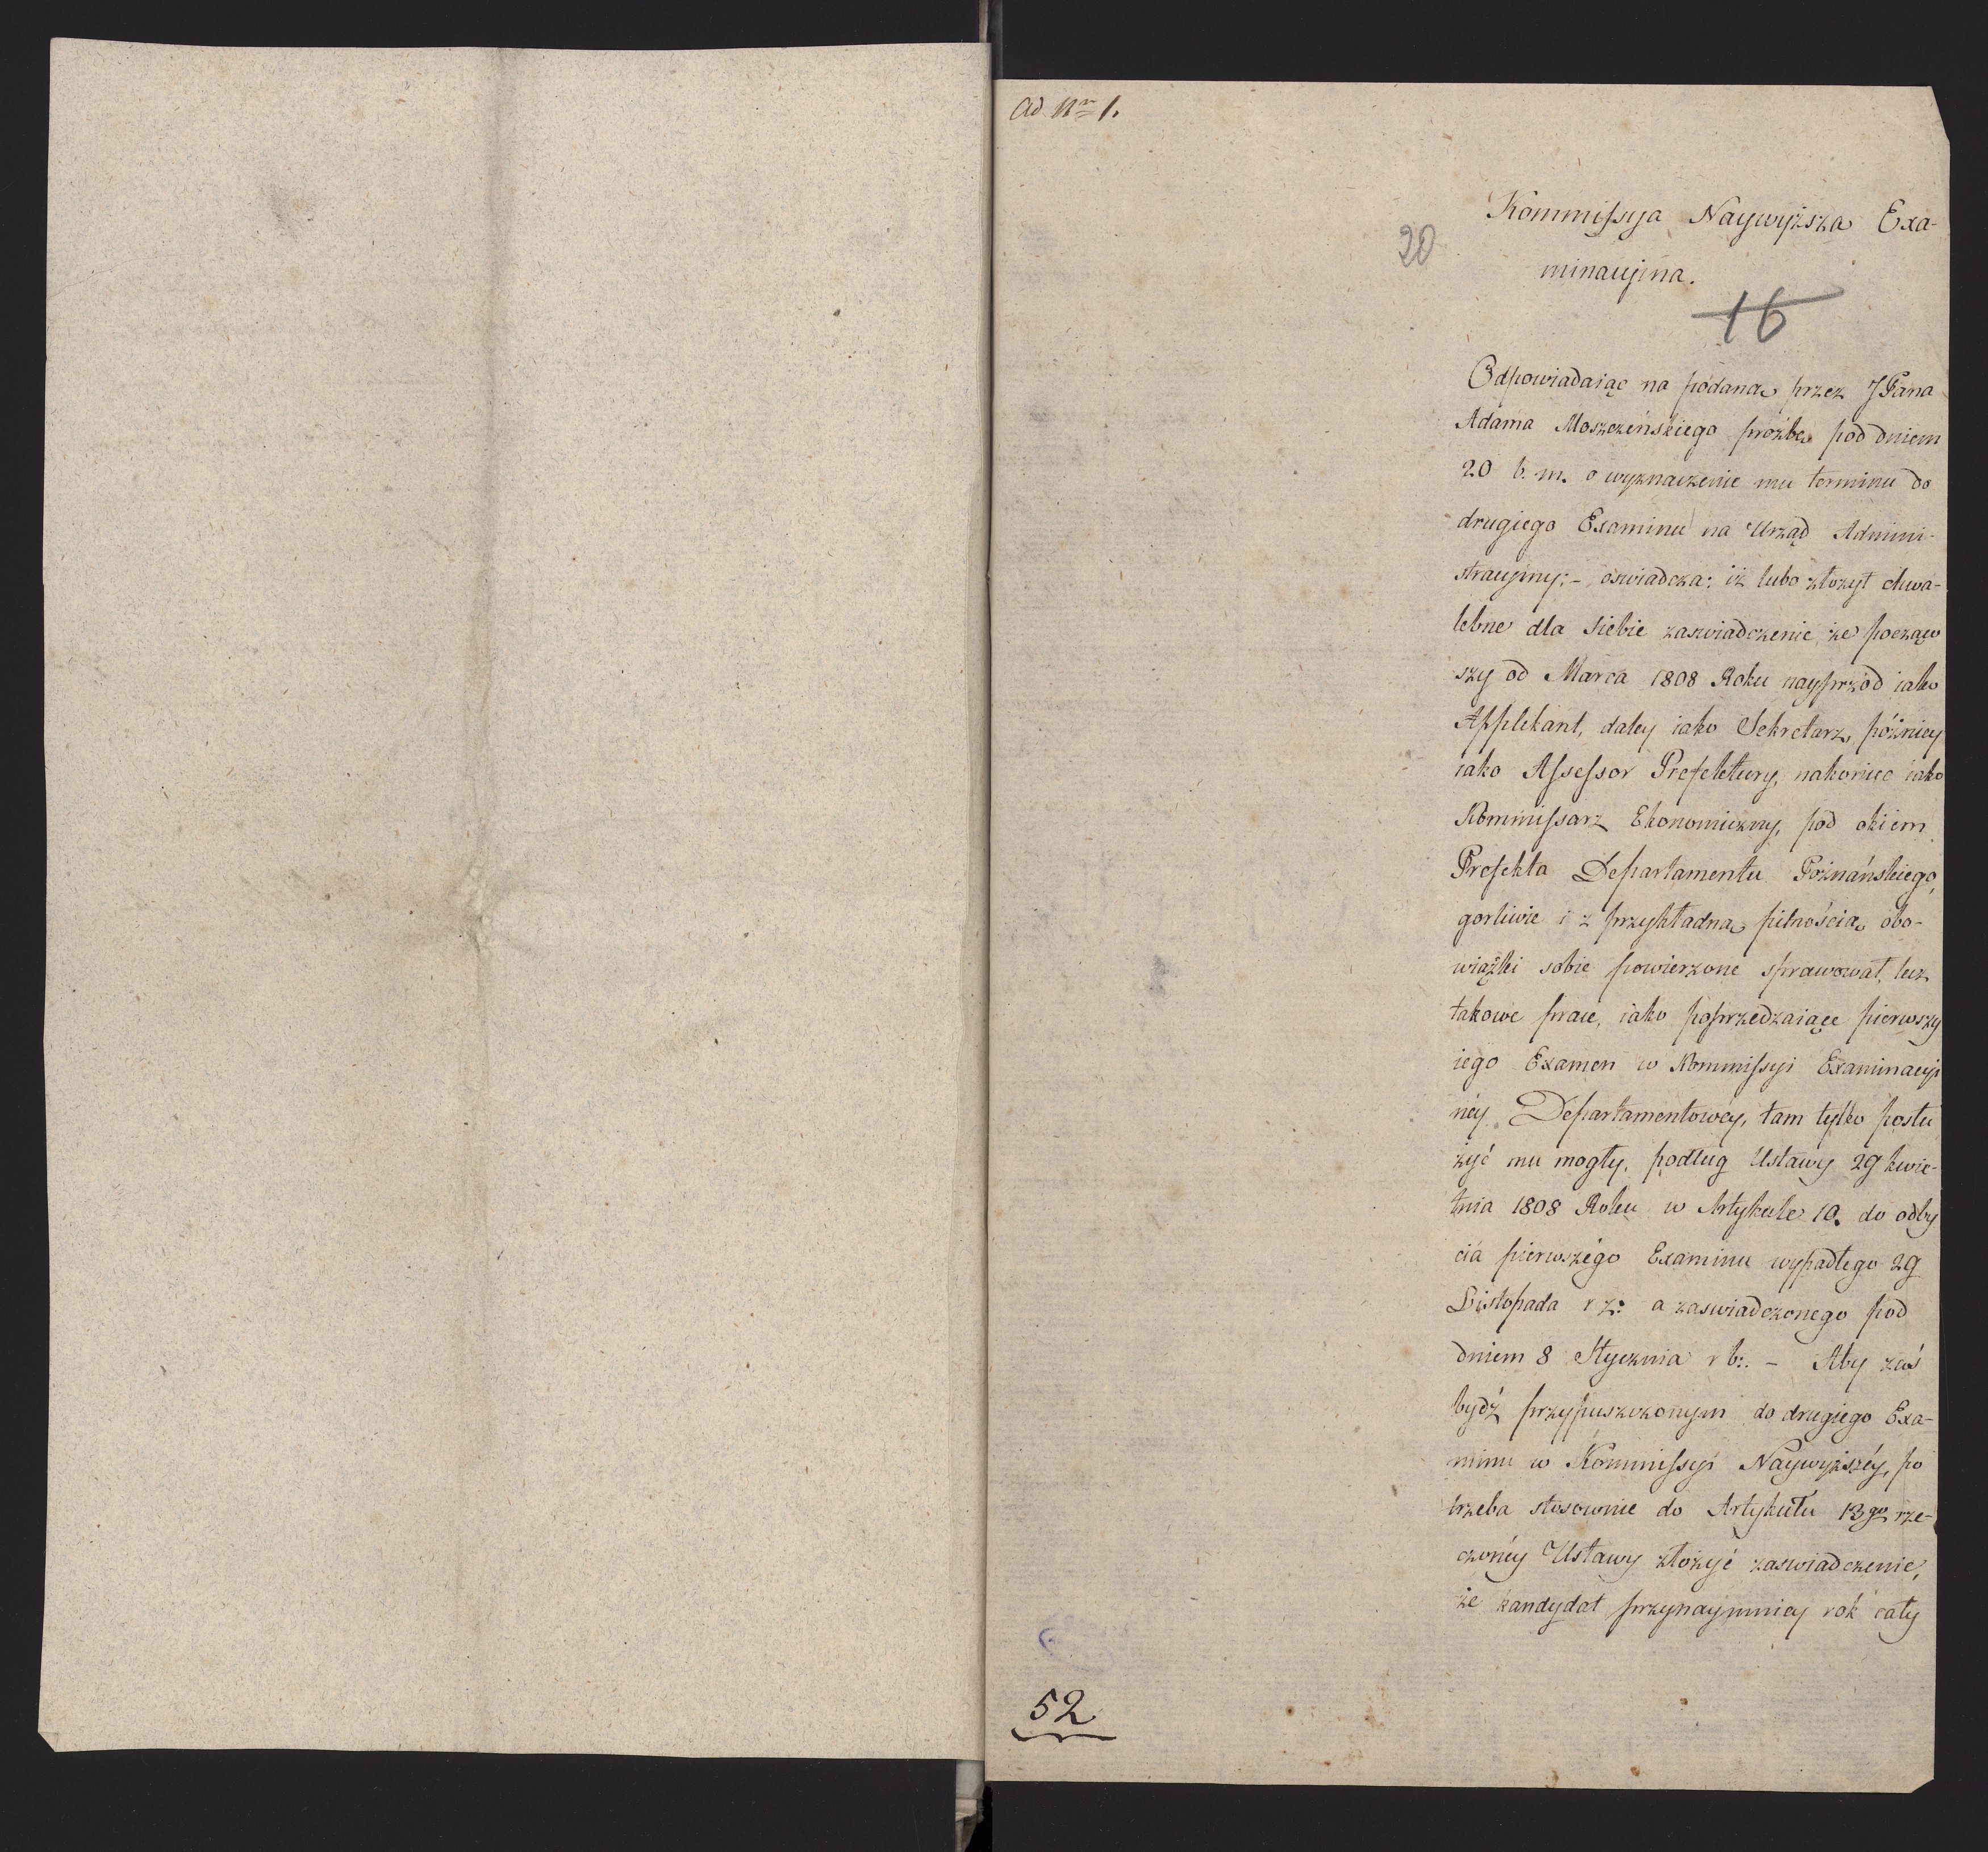 Ad Nr 1.
Kommissya Naywyższa Exa-
20
minacyjna.
16
Odpowiadaiąc na podaną przez JPana
Adama Moszczeńskiego prożbę pod dniem
20 b. m. o wyznaczenie mu terminu do
drugiego Examinu na Urząd Admini-
stracyiny; - oswiadcza: iż lubo złożył chwa-
lebne dla siebie zaswiadczenie, że począw
szy od Marca 1808 Roku nayprzód iako
Applikant, daley iako Sekretarz, późniey
iako Assessor Prefektury, nakoniec iako
Kommissarz Ekonomiczny, pod okiem
Prefekta Departamentu Poznańskiego,
gorliwie i z przykładną pilnością obo-
wiązki sobie powierzone sprawował, lecz
takowe prace, iako poprzedzaiące pierwszy
iego Examen w Kommissyi Examinacyi
néy Departamentowéy, tam tylko posłu
żyć mu mogły, podług Ustawy 29 kwie-
tnia 1808 Roku w Artykule 10. do odby
cia pierwszégo Examinu wypadłego 29
Listopada r z: a zaswiadczonego pod
dniem 8 Stycznia r b:. - Aby zaś
bydź przypuszczonym do drugiego Exa-
minu w Kommissyi Naywyższéy, po
trzeba stosownie do Artykułu 13go rze-
czonéy Ustawy złożyć zaswiadczenie,
że kandydat przynaymniey rok cały
52